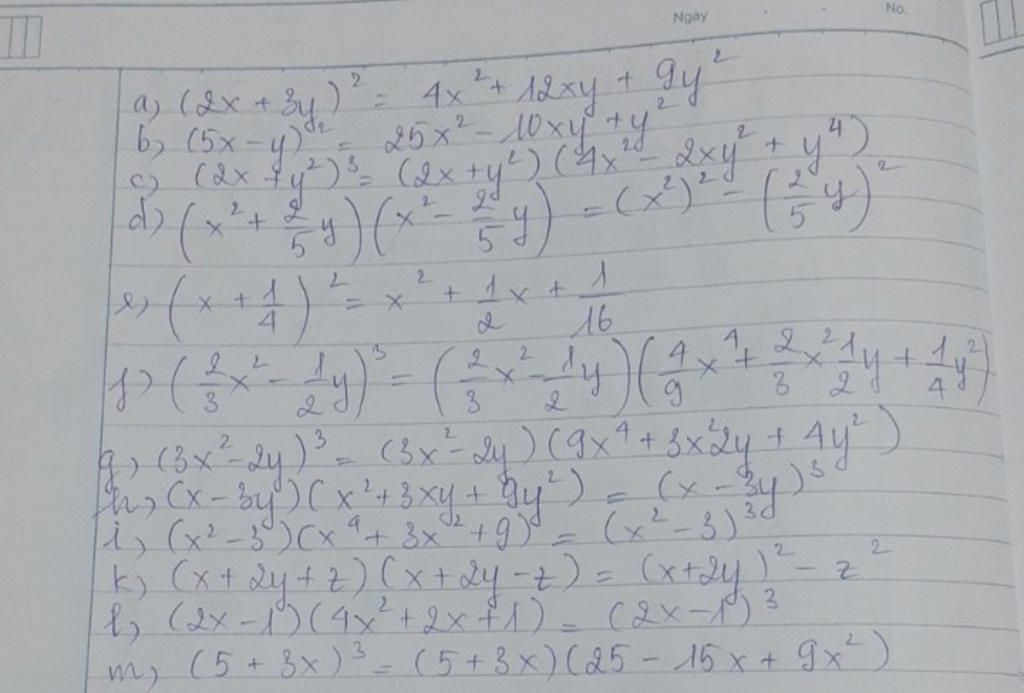 Ngày No.
a) (2x + 3y)² = 4x² + 12xy + 9y²
b) (5x - y)² = 25x² - 10xy + y²
c) (2x + y²)³ = (2x + y²)(4x² - 2xy² + y⁴)
d) (x² + 2/5 y)(x² - 2/5 y) = (x²)² - (2/5 y)²
e) (x + 1/4)² = x² + 1/2 x + 1/16
f) (2/3 x² - 1/2 y)³ = (2/3 x² - 1/2 y)(4/9 x⁴ + 2/3 x² 1/2 y + 1/4 y²)
g) (3x² - 2y)³ = (3x² - 2y)(9x⁴ + 3x²2y + 4y²)
h) (x - 3y)(x² + 3xy + 9y²) = (x - 3y)³
i) (x² - 3)(x⁴ + 3x² + 9) = (x² - 3)³
k) (x + 2y + z)(x + 2y - z) = (x + 2y)² - z²
l) (2x - 1)(4x² + 2x + 1) = (2x - 1)³
m) (5 + 3x)³ = (5 + 3x)(25 - 15x + 9x²)